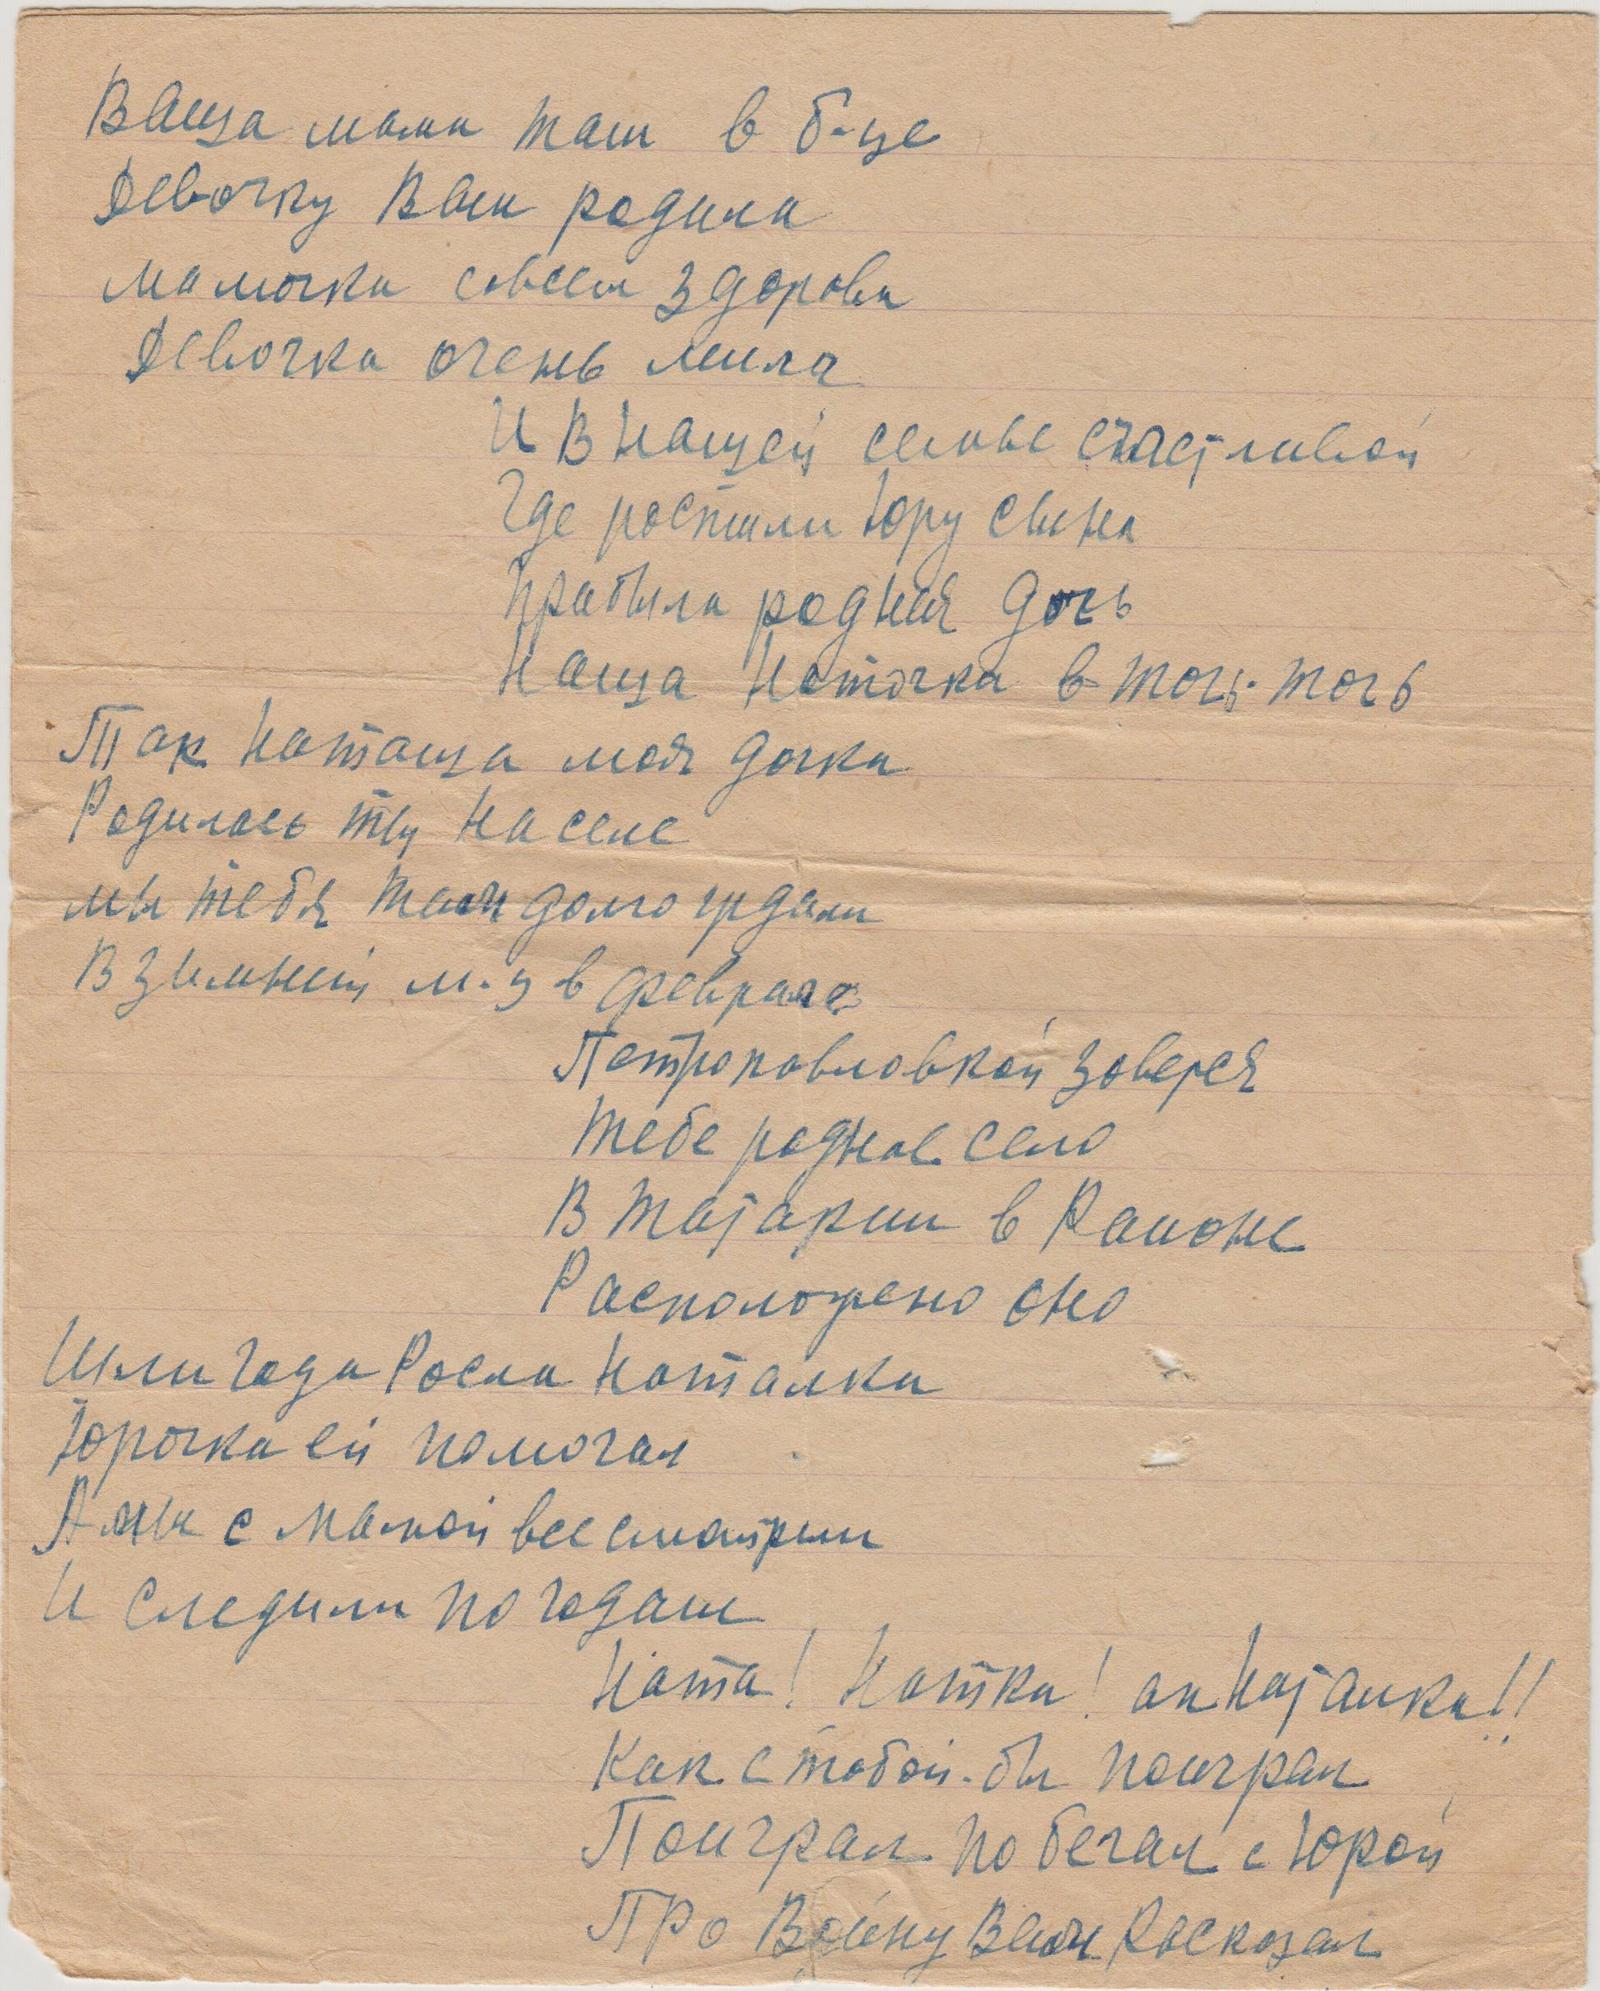 Ваша мама там в б-це
Девочку Вам родила
Мамочка совсем здорова
Девочка очень мила
И В нашей семье счастливой
Где ростили Юру сына
Прабыла родная дочь
Наша Наточка в точь-точь
Так Наташа моя дочка
Родилась ты на селе
мы тебя там долго ждали
В зимний м-ц в феврале
Петропавловкой зовется
Тебе родное село
В Татарии в Районе
Расположено оно
Шли года Росла Наталка
Юрочка ей помогал
А мы с мамой все смотрим
И следили по годам
Ната! Натка! ах Наталка!!
Как с тобой-бы поиграл
Поиграл побегал с Юрой
Про Войну Вам Расказал